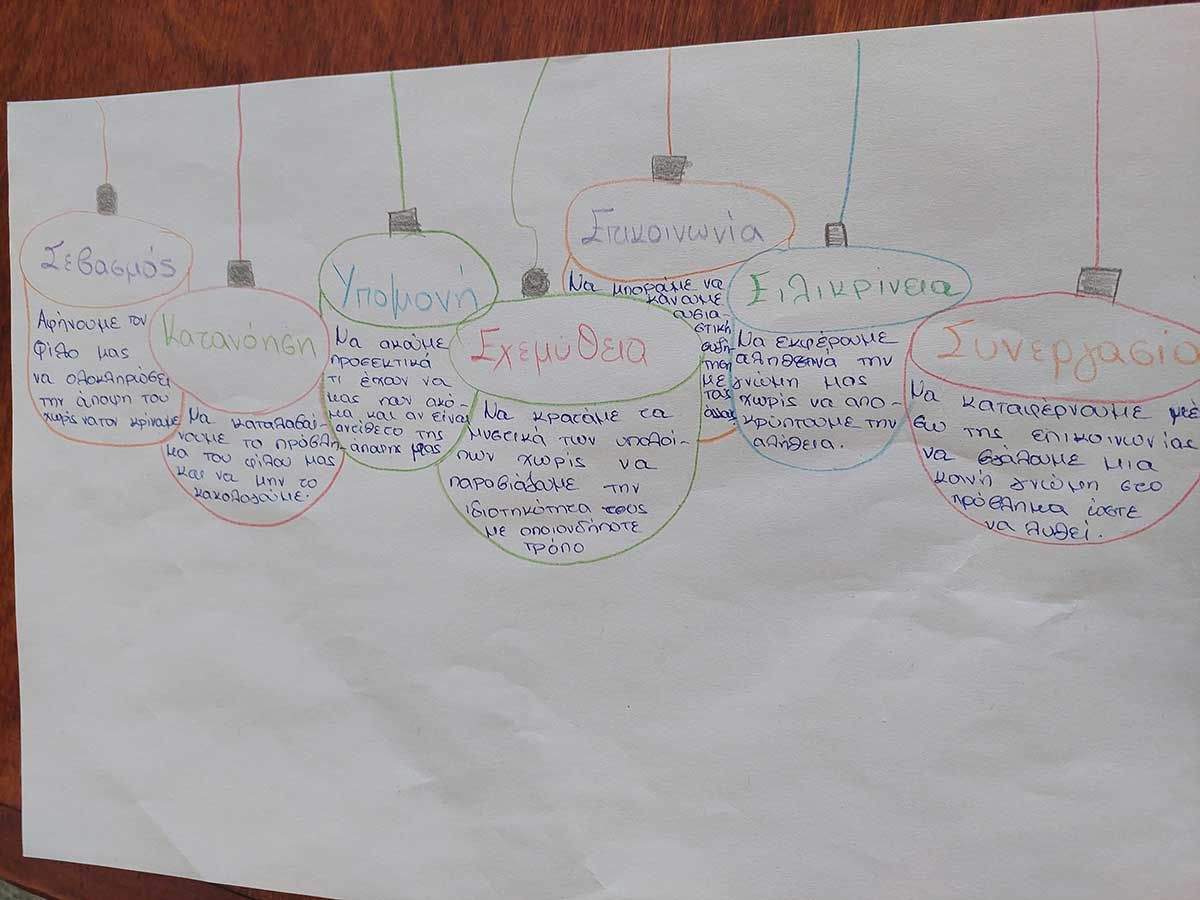 Σεβασμός
Αφήνουμε τον
φίλο μας
να ολοκληρώσει
την άποψη του
χωρίς να τον κρίνουμε
Κατανόηση
Να καταλαβαί-
νουμε το πρόβλη-
μα του φίλου μας
και να μην το
κακολογούμε.
Υπομονή
Να ακούμε
προσεκτικά
τι έχουν να
μας πουν ακό-
μα και αν είναι
αντίθετο της
άποψης μας
Εχεμύθεια
Να κρατάμε τα
μυστικά των υπολοί-
πων χωρίς να
παροσιάζουμε την
ιδιοτηκότητα τους
με οποιονδήποτε
τρόπο
Επικοινωνία
Να μποράμε να
κάνουμε
ουσια-
στική
συζή-
τηση
με
τους
άλλους
Ειλικρίνεια
Να εκφέρουμε
αληθινά την
γνώμη μας
χωρίς να απο-
κρύπτουμε την
αλήθεια.
Συνεργασία
Να καταφέρνουμε μέ-
σω της επικοινωνίας
να βγάλουμε μια
κοινή γνώμη στο
πρόβλημα ώστε
να λυθεί.